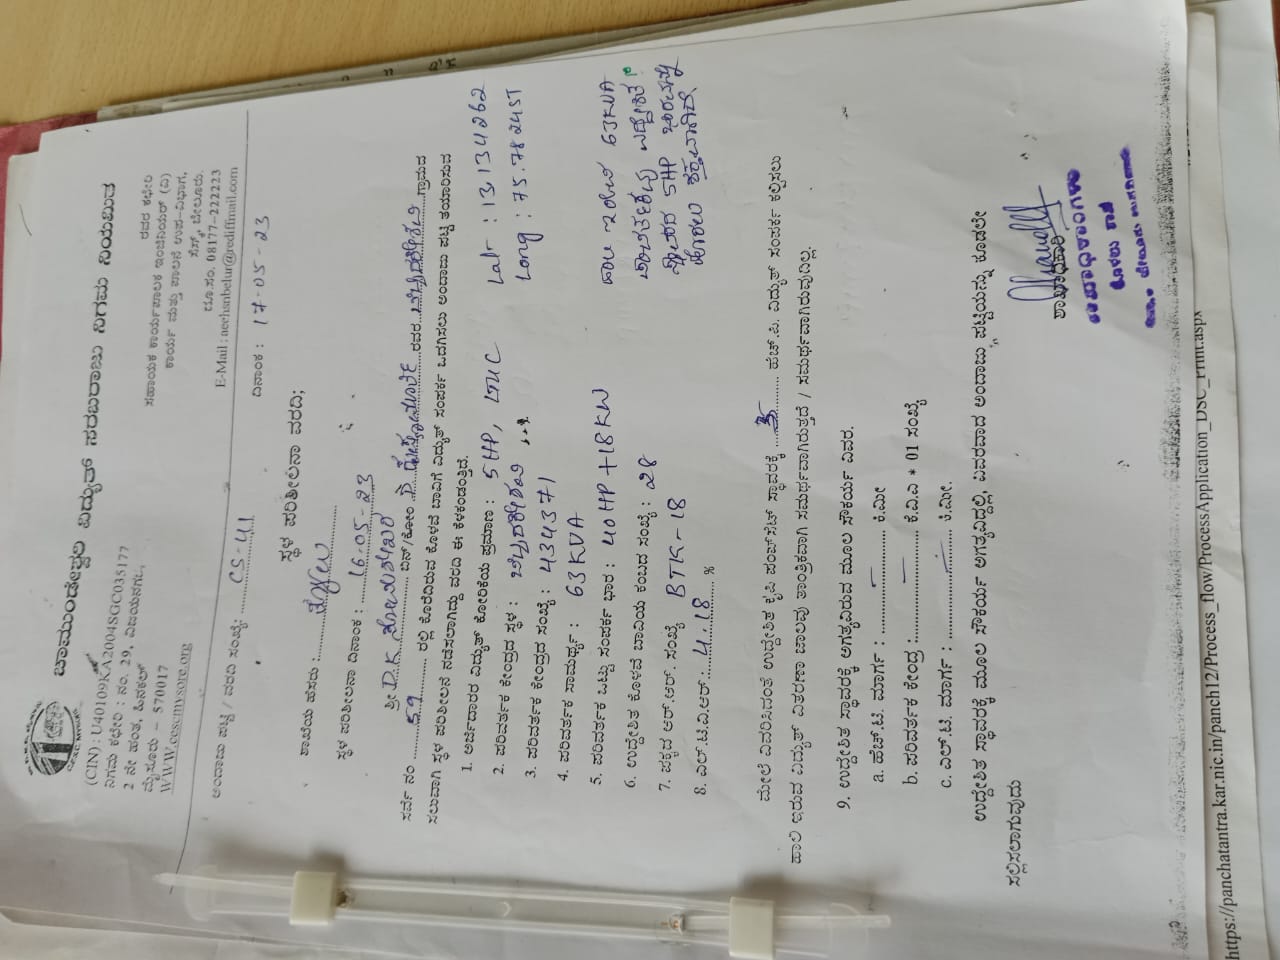 ಚಾಮುಂಡೇಶ್ವರಿ ವಿದ್ಯುತ್ ಸರಬರಾಜು ನಿಗಮ ನಿಯಮಿತ
(CIN) : U40109KA2004SGC035177
ನಿಗಮ ಕಛೇರಿ : ನಂ. 29, ವಿಜಯನಗರ,
2 ನೇ ಹಂತ, ಹಿನಕಲ್
ಮೈಸೂರು - 570017
WWW.cescmysore.org
ರವರ ಕಛೇರಿ
ಸಹಾಯಕ ಕಾರ್ಯಪಾಲಕ ಇಂಜಿನಿಯರ್ (ವಿ)
ಕಾರ್ಯ ಮತ್ತು ಪಾಲನೆ ಉಪ-ವಿಭಾಗ,
ಸೆಸ್ಕ್, ಬೇಲೂರು.
ದೂ.ಸಂ. 08177-222223
E-Mail : aeehsnbelur@rediffmail.com
ಅಂದಾಜು ಪಟ್ಟಿ / ವರದಿ ಸಂಖ್ಯೆ: CS-41
ದಿನಾಂಕ : 17-05-23
ಸ್ಥಳ ಪರಿಶೀಲನಾ ವರದಿ;
ಶಾಖೆಯ ಹೆಸರು :
ಸ್ಥಳ ಪರಿಶೀಲನಾ ದಿನಾಂಕ : 16-05-23
ಶ್ರೀ D.K ಸೋಮಶೇಖರ ಬಿನ್ ಕೋಂ ರವರ ಗ್ರಾಮದ
ಸರ್ವೆ ನಂ 59 ರಲ್ಲಿ ಕೊರೆದಿರುವ ಕೊಳವೆ ಬಾವಿಗೆ ವಿದ್ಯುತ್ ಸಂಪರ್ಕ ಒದಗಿಸಲು ಅಂದಾಜು ಪಟ್ಟಿ ತಯಾರಿಸುವ
ಸಲುವಾಗಿ ಸ್ಥಳ ಪರಿಶೀಲನೆ ನಡೆಸಲಾಗಿದ್ದು ವರದಿ ಈ ಕೆಳಕಂಡಂತ್ತಿದೆ.
1. ಅರ್ಜಿದಾರರ ವಿದ್ಯುತ್ ಕೋರಿಕೆಯ ಪ್ರಮಾಣ : 5HP,
2. ಪರಿವರ್ತಕ ಕೇಂದ್ರದ ಸ್ಥಳ : Lat : 13.134262
3. ಪರಿವರ್ತಕ ಕೇಂದ್ರದ ಸಂಖ್ಯೆ : 434371 Long : 75.7824
4. ಪರಿವರ್ತಕ ಸಾಮರ್ಥ್ಯ : 63KVA
5. ಪರಿವರ್ತಕ ಒಟ್ಟು ಸಂಪರ್ಕ ಭಾರ : 40HP+18KW ಹಾಲಿ ಇರುವ 63KVA
6. ಉದ್ದೇಶಿತ ಕೊಳವೆ ಬಾವಿಯ ಕಂಬದ ಸಂಖ್ಯೆ : 28
7. ಪಕ್ಕದ ಆರ್.ಆರ್. ಸಂಖ್ಯೆ BTK-18 5HP
8. ಎಲ್.ಟಿ.ವಿ.ಆರ್ 4.18 %
ಮೇಲೆ ವಿವರಿಸಿದಂತೆ ಉದ್ದೇಶಿತ ಕೃಷಿ ಪಂಪ್‌ಸೆಟ್ ಸ್ಥಾವರಕ್ಕೆ 5 ಹೆಚ್.ಪಿ. ವಿದ್ಯುತ್ ಸಂಪರ್ಕ ಕಲ್ಪಿಸಲು
ಹಾಲಿ ಇರುವ ವಿದ್ಯುತ್ ವಿತರಣಾ ಜಾಲವು ತಾಂತ್ರಿಕವಾಗಿ ಸಮರ್ಥವಾಗಿರುತ್ತದೆ / ಸಮರ್ಥವಾಗಿರುವುದಿಲ್ಲ.
9. ಉದ್ದೇಶಿತ ಸ್ಥಾವರಕ್ಕೆ ಅಗತ್ಯವಿರುವ ಮೂಲ ಸೌಕರ್ಯ ವಿವರ.
a. ಹೆಚ್.ಟಿ. ಮಾರ್ಗ : - ಕಿ.ಮೀ
b. ಪರಿವರ್ತಕ ಕೇಂದ್ರ : - ಕೆ.ವಿ.ಎ * 01 ಸಂಖ್ಯೆ
c. ಎಲ್.ಟಿ. ಮಾರ್ಗ : - ಕಿ.ಮೀ.
ಉದ್ದೇಶಿತ ಸ್ಥಾವರಕ್ಕೆ ಮೂಲ ಸೌಕರ್ಯ ಅಗತ್ಯವಿದ್ದಲ್ಲಿ, ವಿವರವಾದ ಅಂದಾಜು ಪಟ್ಟಿಯನ್ನು ಕೂಡಲೇ
ಸಲ್ಲಿಸಲಾಗುವುದು
ಶಾಖಾಧಿಕಾರಿ
https://panchatantra.kar.nic.in/panch12/Process_flow/ProcessApplication_DSC_Print.aspx